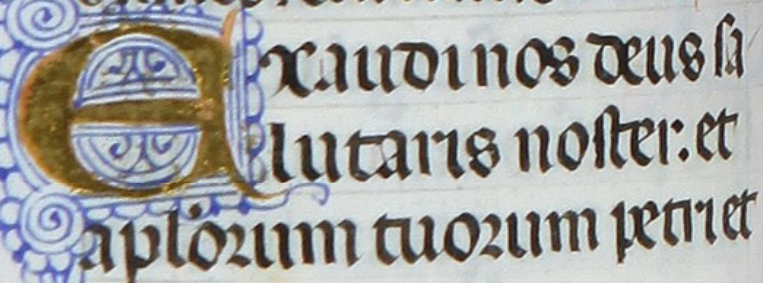 Exaudi nos deus sa
lutaris noster: et
apl'orum tuorum petri et